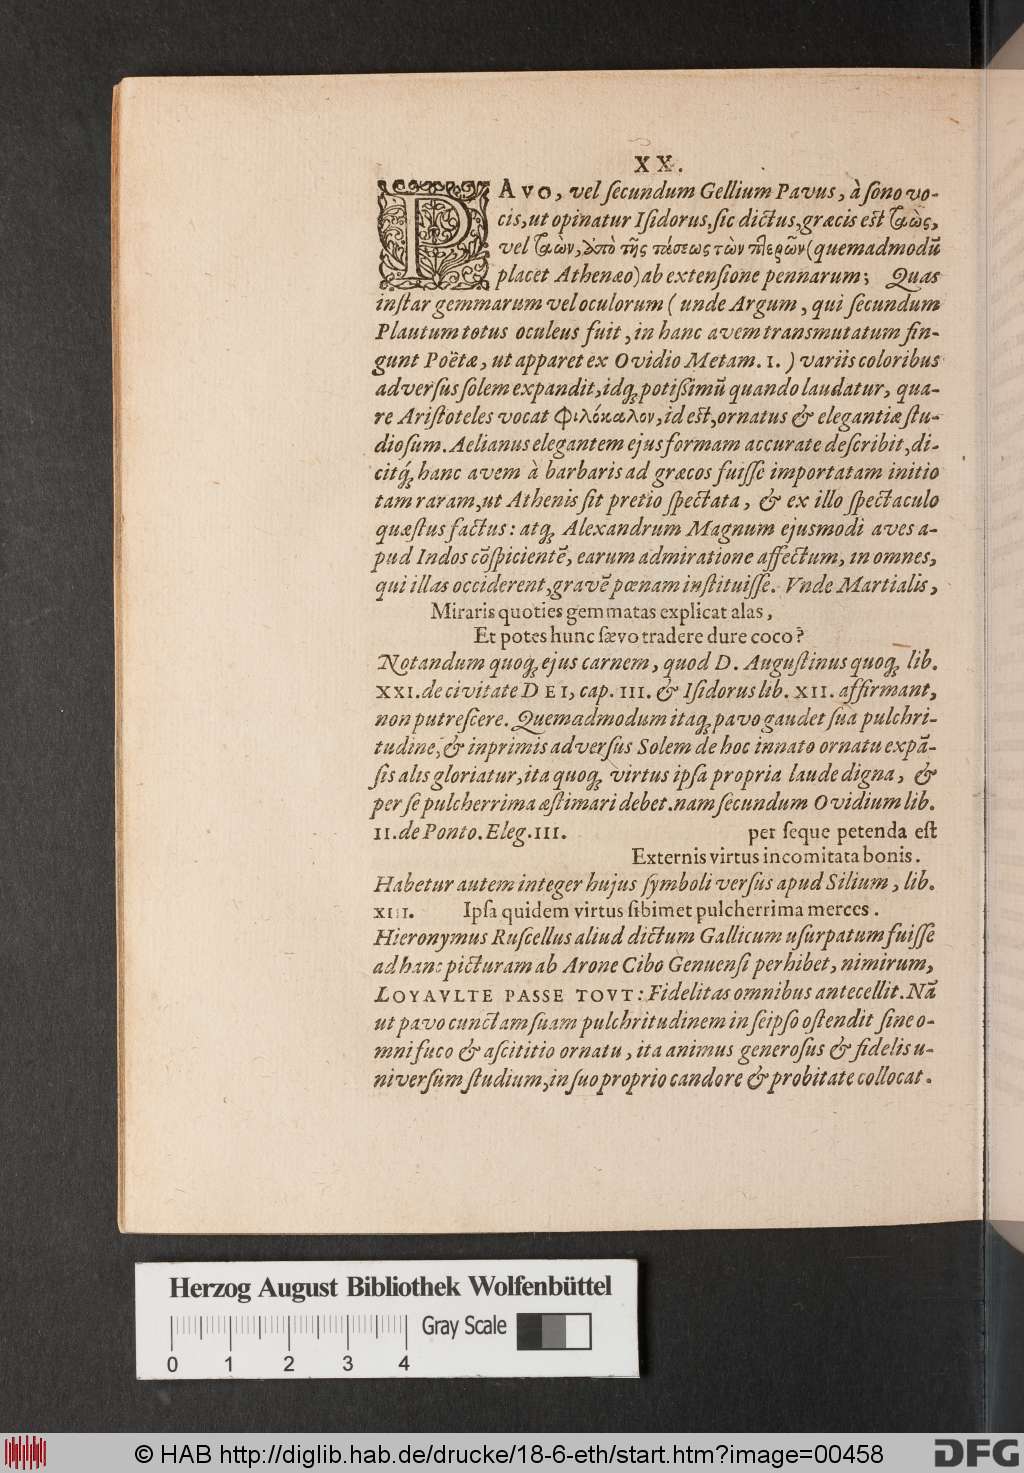 XX.
PAVO, vel ſecundum Gellium Pavus, à ſono vo-
cis, ut opinatur Iſidorus, ſic dictus, græcis est ταὼς,
vel ταὼν, ἀπὸ τῆς τάσεως τῶν πτερῶν (quemadmodũ
placet Athenæo) ab extenſione pennarum; Quas
inſtar gemmarum vel oculorum (unde Argum, qui ſecundum
Plautum totus oculeus fuit, in hanc avem transmutatum fin-
gunt Poëtæ, ut apparet ex Ovidio Metam. 1.) variis coloribus
adverſus ſolem expandit, idq; potiſſimũ quando laudatur, qua-
re Ariſtoteles vocat φιλόκαλον, id est, ornatus & elegantiæ ſtu-
dioſum. Aelianus elegantem ejus formam accurate deſcribit, di-
citq́; hanc avem à barbaris ad græcos fuiſſe importatam initio
tam raram, ut Athenis ſit pretio ſpectata, & ex illo ſpectaculo
quæſtus factus: atq; Alexandrum Magnum ejusmodi aves a-
pud Indos cõſpicientẽ, earum admiratione affectum, in omnes,
qui illas occiderent, gravẽ pœnam inſtituiſſe. Vnde Martialis,
Miraris quoties gemmatas explicat alas,
Et potes hunc ſævo tradere dure coco?
Notandum quoq; ejus carnem, quod D. Auguſtinus quoq; lib.
XXI. de civitate DEI, cap. III. & Iſidorus lib. XII. affirmant,
non putreſcere. Quemadmodum itaq; pavo gaudet ſua pulchri-
tudine, & inprimis adverſus Solem de hoc innato ornatu expã-
ſis alis gloriatur, ita quoq; virtus ipſa propria laude digna, &
per ſe pulcherrima æſtimari debet. nam ſecundum Ovidium lib.
II. de Ponto. Eleg. III. per ſeque petenda eſt
Externis virtus incomitata bonis.
Habetur autem integer hujus ſymboli verſus apud Silium, lib.
XIII. Ipſa quidem virtus ſibimet pulcherrima merces.
Hieronymus Ruſcellus aliud dictum Gallicum uſurpatum fuiſſe
ad hanc picturam ab Arone Cibo Genuenſi perhibet, nimirum,
LOYAVLTE PASSE TOVT: Fidelitas omnibus antecellit. Nã
ut pavo cunctam ſuam pulchritudinem in ſeipſo oſtendit ſine o-
mni fuco & aſcititio ornatu, ita animus generoſus & fidelis u-
niverſum ſtudium, in ſuo proprio candore & probitate collocat.
Herzog August Bibliothek Wolfenbüttel
Gray Scale
0 1 2 3 4
© HAB http://diglib.hab.de/drucke/18-6-eth/start.htm?image=00458
DFG